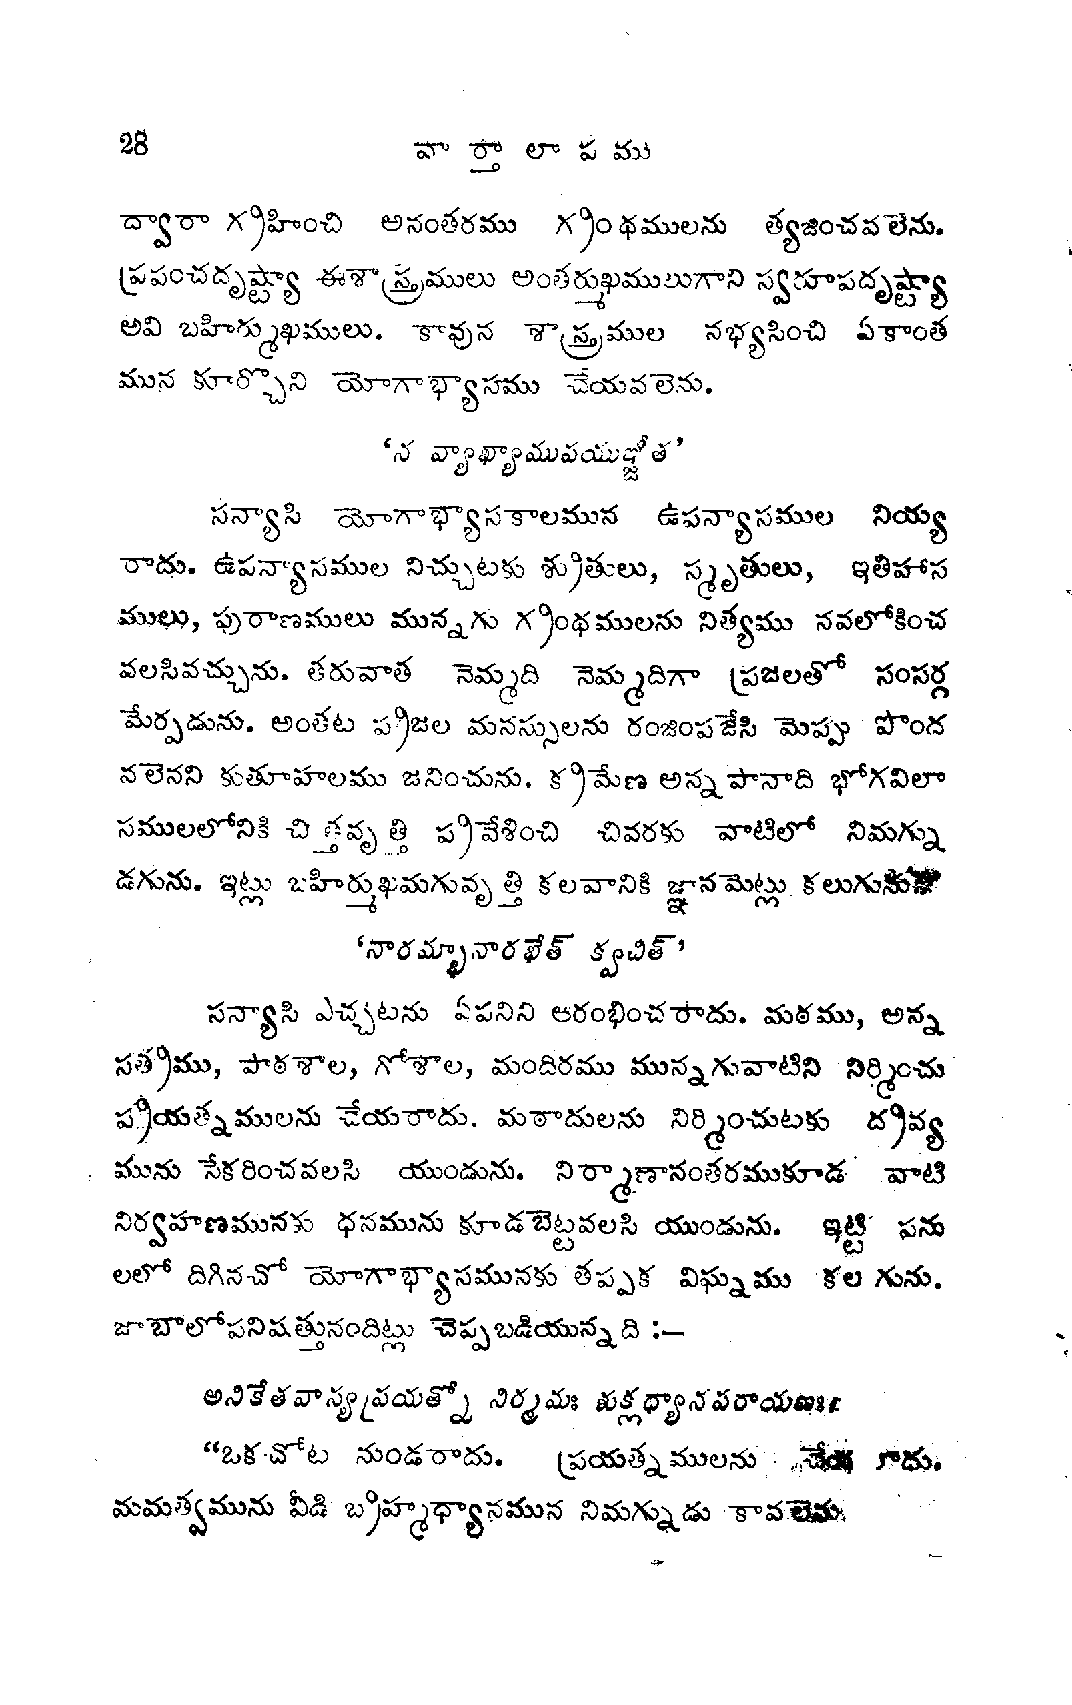 28 వార్తాలాపము
ద్వారా గ్రహించి అనంతరము గ్రంథములను త్యజించవలెను.
ప్రపంచదృష్ట్యా ఈశాస్త్రములు అంతర్ముఖములుగాని స్వరూపదృష్ట్యా
అవి బహిర్ముఖములు. కావున శాస్త్రముల నభ్యసించి ఏకాంత
మున కూర్చొని యోగాభ్యాసము చేయవలెను.
‘న వ్యాఖ్యాముపయుఞ్జీత’
సన్యాసి యోగాభ్యాసకాలమున ఉపన్యాసముల నియ్య
రాదు. ఉపన్యాసముల నిచ్చుటకు శ్రుతులు, స్మృతులు, ఇతిహాస
ములు, పురాణములు మున్నగు గ్రంథములను నిత్యము నవలోకించ
వలసివచ్చును. తరువాత నెమ్మది నెమ్మదిగా ప్రజలతో సంసర్గ
మేర్పడును. అంతట ప్రజల మనస్సులను రంజింపజేసి మెప్పు పొంద
నలెనని కుతూహలము జనించును. క్రమేణ అన్నపానాది భోగవిలా
సములలోనికి చిత్తవృత్తి ప్రవేశించి చివరకు వాటిలో నిమగ్ను
డగును. ఇట్లు బహిర్ముఖమగువృత్తి కలవానికి జ్ఞానమెట్లు
‘నారమ్భానారభేత్ క్వచిత్’
సన్యాసి ఎచ్చటను ఏపనిని ఆరంభించరాదు. మఠము, అన్న
సత్రము, పాఠశాల, గోశాల, మందిరము మున్నగువాటిని నిర్మించు
ప్రయత్నములను చేయరాదు. మఠాదులను నిర్మించుటకు ద్రవ్య
మును సేకరించవలసి యుండును. నిర్మాణానంతరముకూడ వాటి
నిర్వహణమునకు ధనమును కూడబెట్టవలసి యుండును. ఇట్టి పను
లలో దిగినచో యోగాభ్యాసమునకు తప్పక విఘ్నము కలగును.
జాబాలోపనిషత్తునందిట్లు చెప్పబడియున్నది :—
అనికేతవాస్యప్రయత్నో నిర్మమః శుక్లధ్యానపరాయణః
“ఒకచోట నుండరాదు. ప్రయత్నములను చేయ రాదు.
మమత్వమును వీడి బ్రహ్మధ్యానమున నిమగ్నుడు కావలెను.